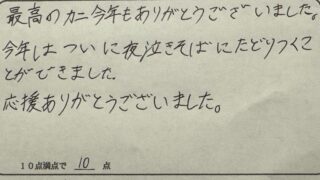 最高のカニ今年もありがとうございました。
今年はついに夜泣きそばにたどりつくこ
とができました.
応援ありがとうございました。
10点満点で 10 点